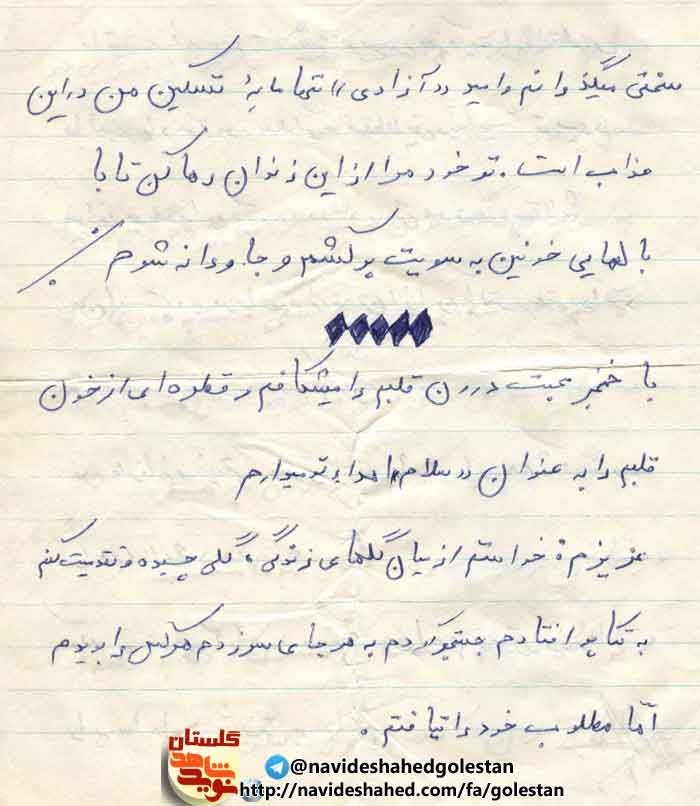 سختی میگذرانم و امید «آزادی» تنها مایهٔ تسکین من در این
عذاب است. تو خود مرا از این زندان رها کن تا با
بالهایی خونین به سویت پر کشم و جاودانه شوم
با خنجر محبت درون قلبم را میشکافم و قطره ای از خون
قلبم را به عنوان سلام اهداء تو میدارم
عزیزم؛ خواستم از میان گلهای زندگی، گلی چیده و تقدیمت کنم
به تکاپو افتادم جستجو کردم به هر جای سر زدم هر کس را بدیدم
امّا مطلوب خود را نیافتم.
گلستان
نوید شاهد
@navideshahedgolestan
http://navideshahed.com/fa/golestan